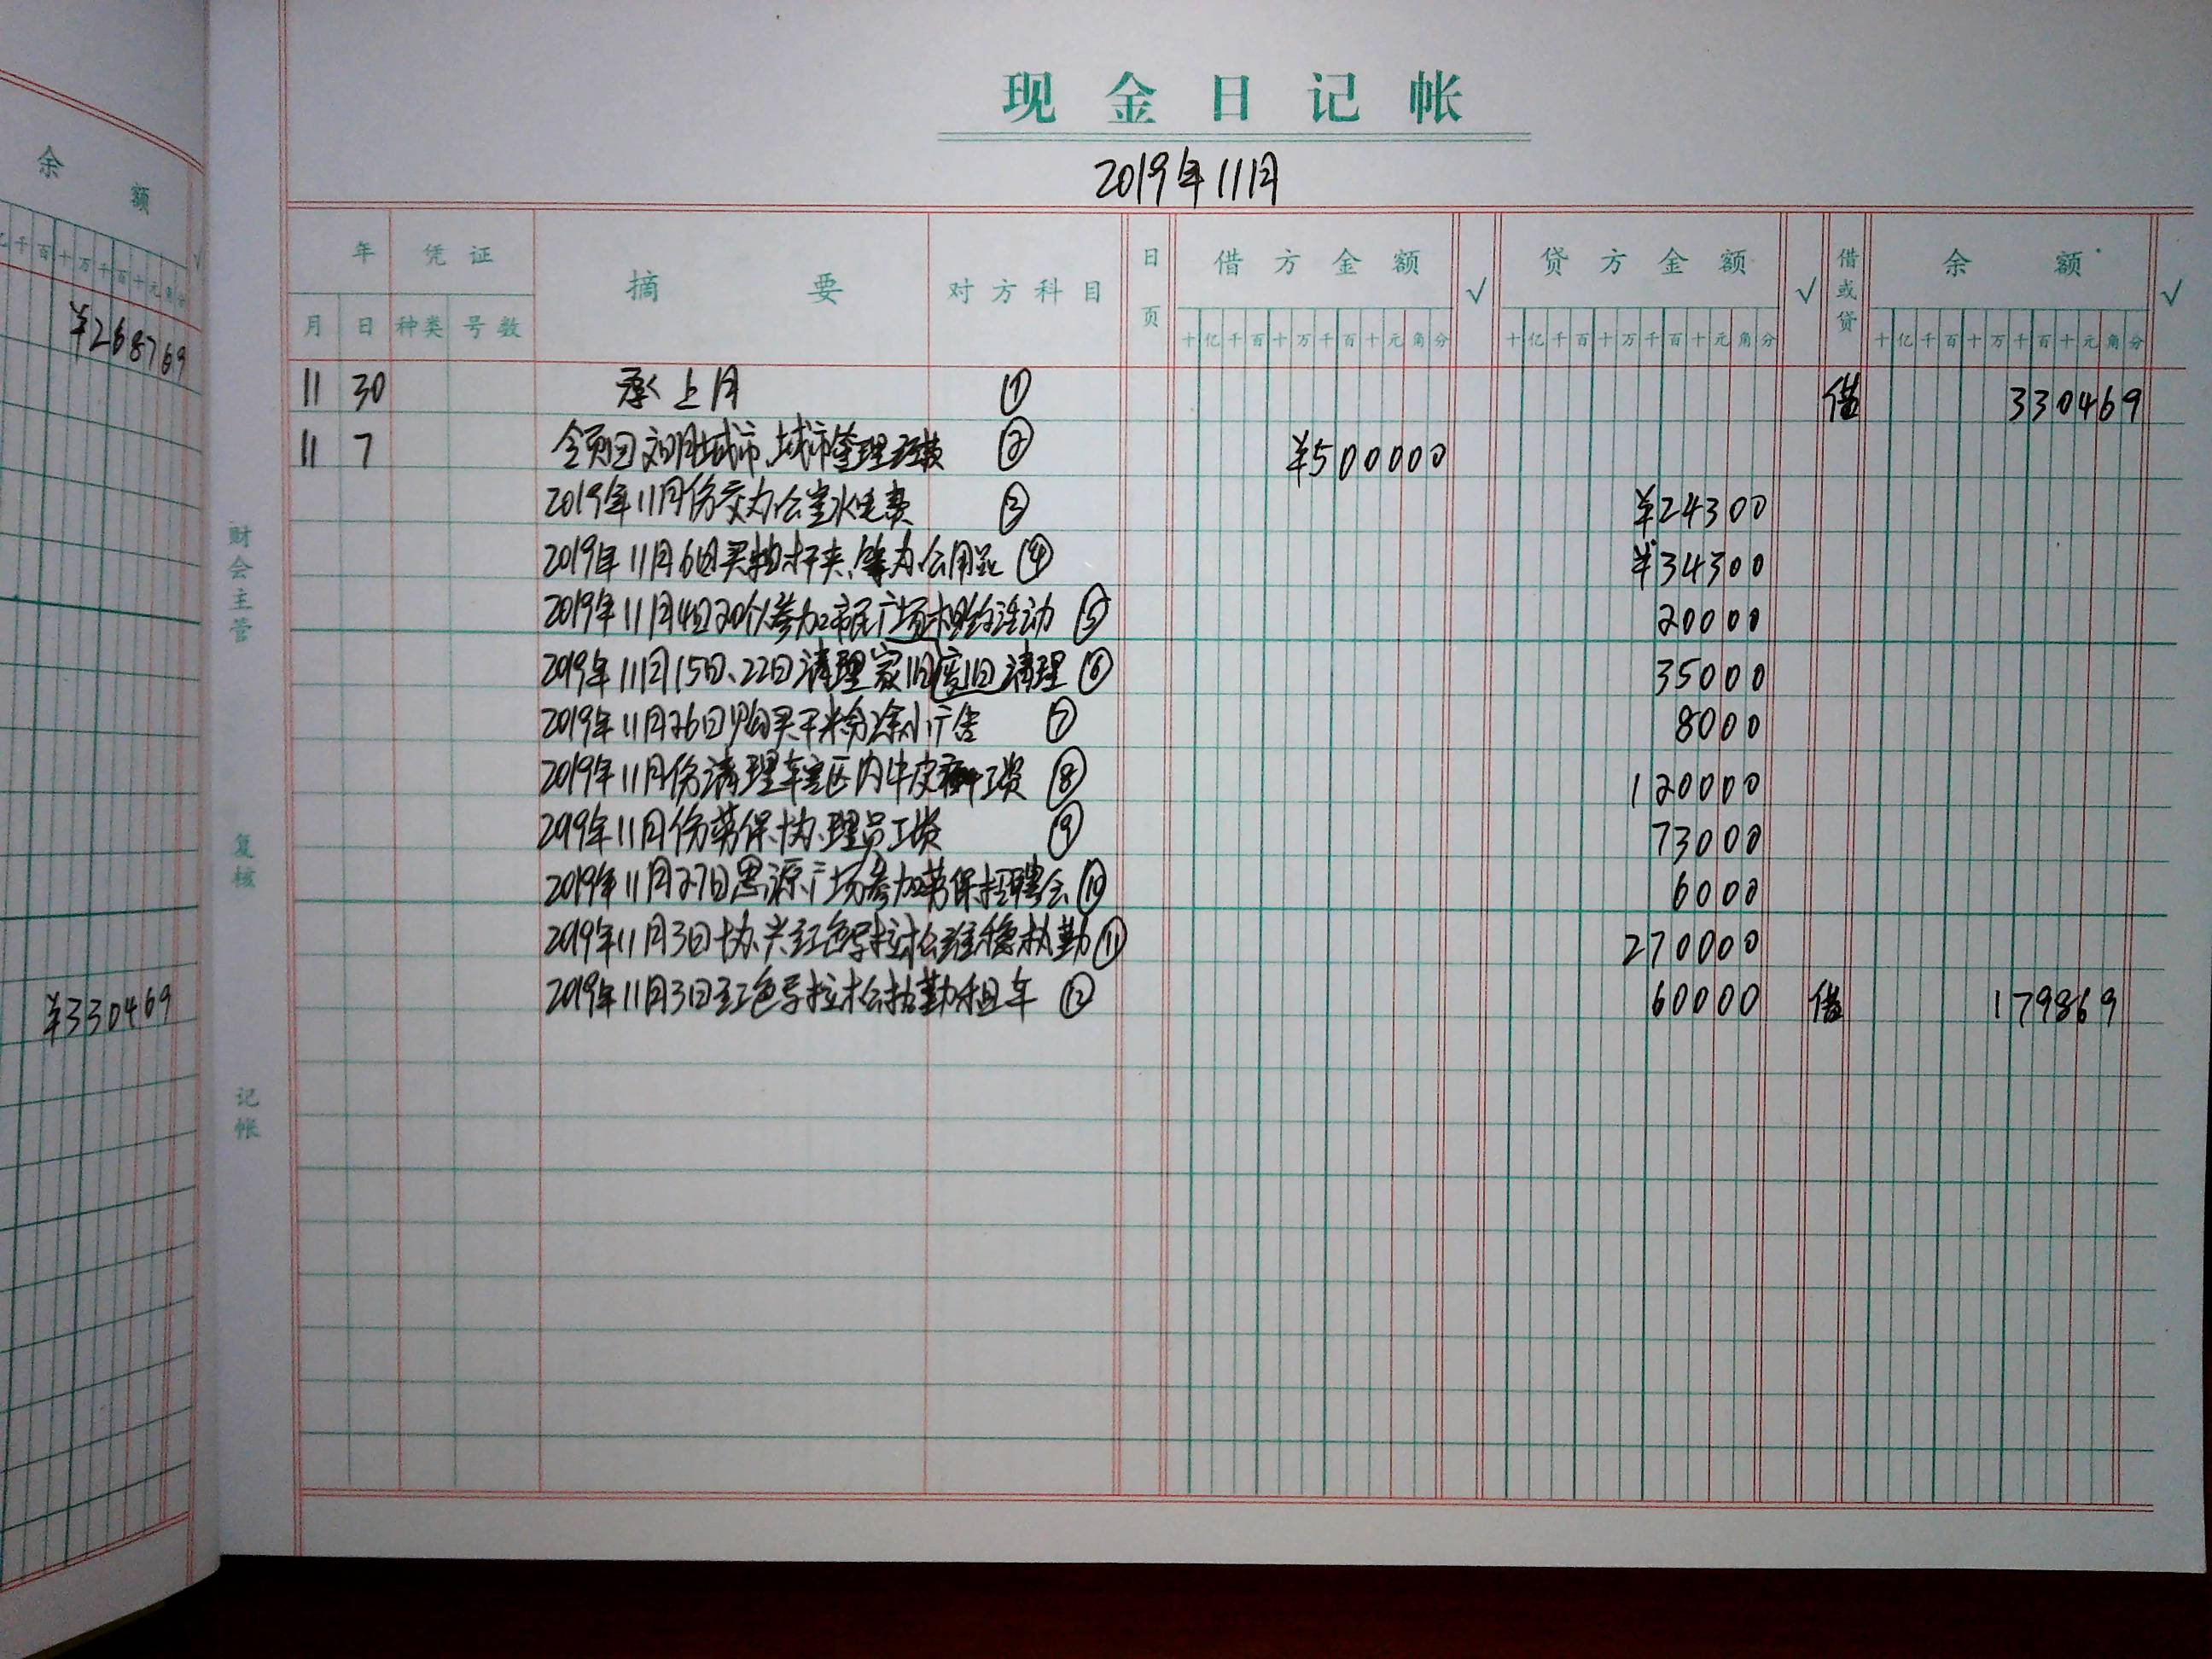 余 额
亿 千 百 十 万 千 百 十 元 角 分 √
¥268769
¥330469
财会主管
复核
记帐
现金日记帐
2019年11月
年 凭证 摘 要 对方科目 日页 借方金额 √ 贷方金额 √ 借或贷 余 额 √
月 日 种类 号数 十亿千百十万千百十元角分 十亿千百十万千百十元角分 十亿千百十万千百十元角分
11 30 承上月 ① 借 330469
11 7 领回文明城市、城市管理经费 ② ¥500000
2019年11月份交办公室水电费 ③ ¥24300
2019年11月6日买抽杆夹、等办公用品 ④ ¥34300
2019年11月4日20个人参加市民广场活动 ⑤ 20000
2019年11月15日、22日清理家旧废旧清理 ⑥ 35000
2019年11月26日购买干粉涂小广告 ⑦ 8000
2019年11月份清理辖区内牛皮癣工资 ⑧ 120000
2019年11月份劳保协理员工资 ⑨ 73000
2019年11月27日思源广场参加劳保招聘会 ⑩ 6000
2019年11月3日协兴红色马拉松维稳执勤 ⑪ 270000
2019年11月3日红色马拉松执勤租车 ⑫ 60000 借 179869